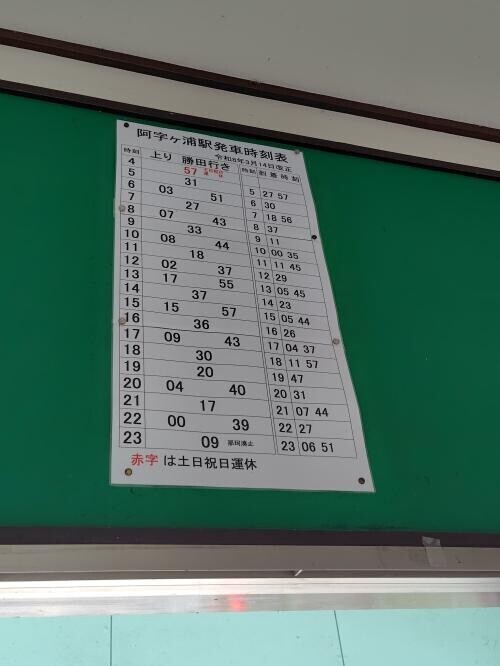 阿字ヶ浦駅発車時刻表
令和8年3月14日改正
時刻 上り 勝田行き 時刻 到着時刻
4 57
5 31 5 27 57
6 03 51 6 30
7 27 7 18 56
8 07 43 8 37
9 33 9 11
10 08 44 10 00 35
11 18 11 11 45
12 02 37 12 29
13 17 55 13 05 45
14 37 14 23
15 15 57 15 05 44
16 36 16 26
17 09 43 17 04 37
18 30 18 11 57
19 20 19 47
20 04 40 20 31
21 17 21 07 44
22 00 39 22 27
23 09 那珂湊止 23 06 51
赤字 は土日祝日運休